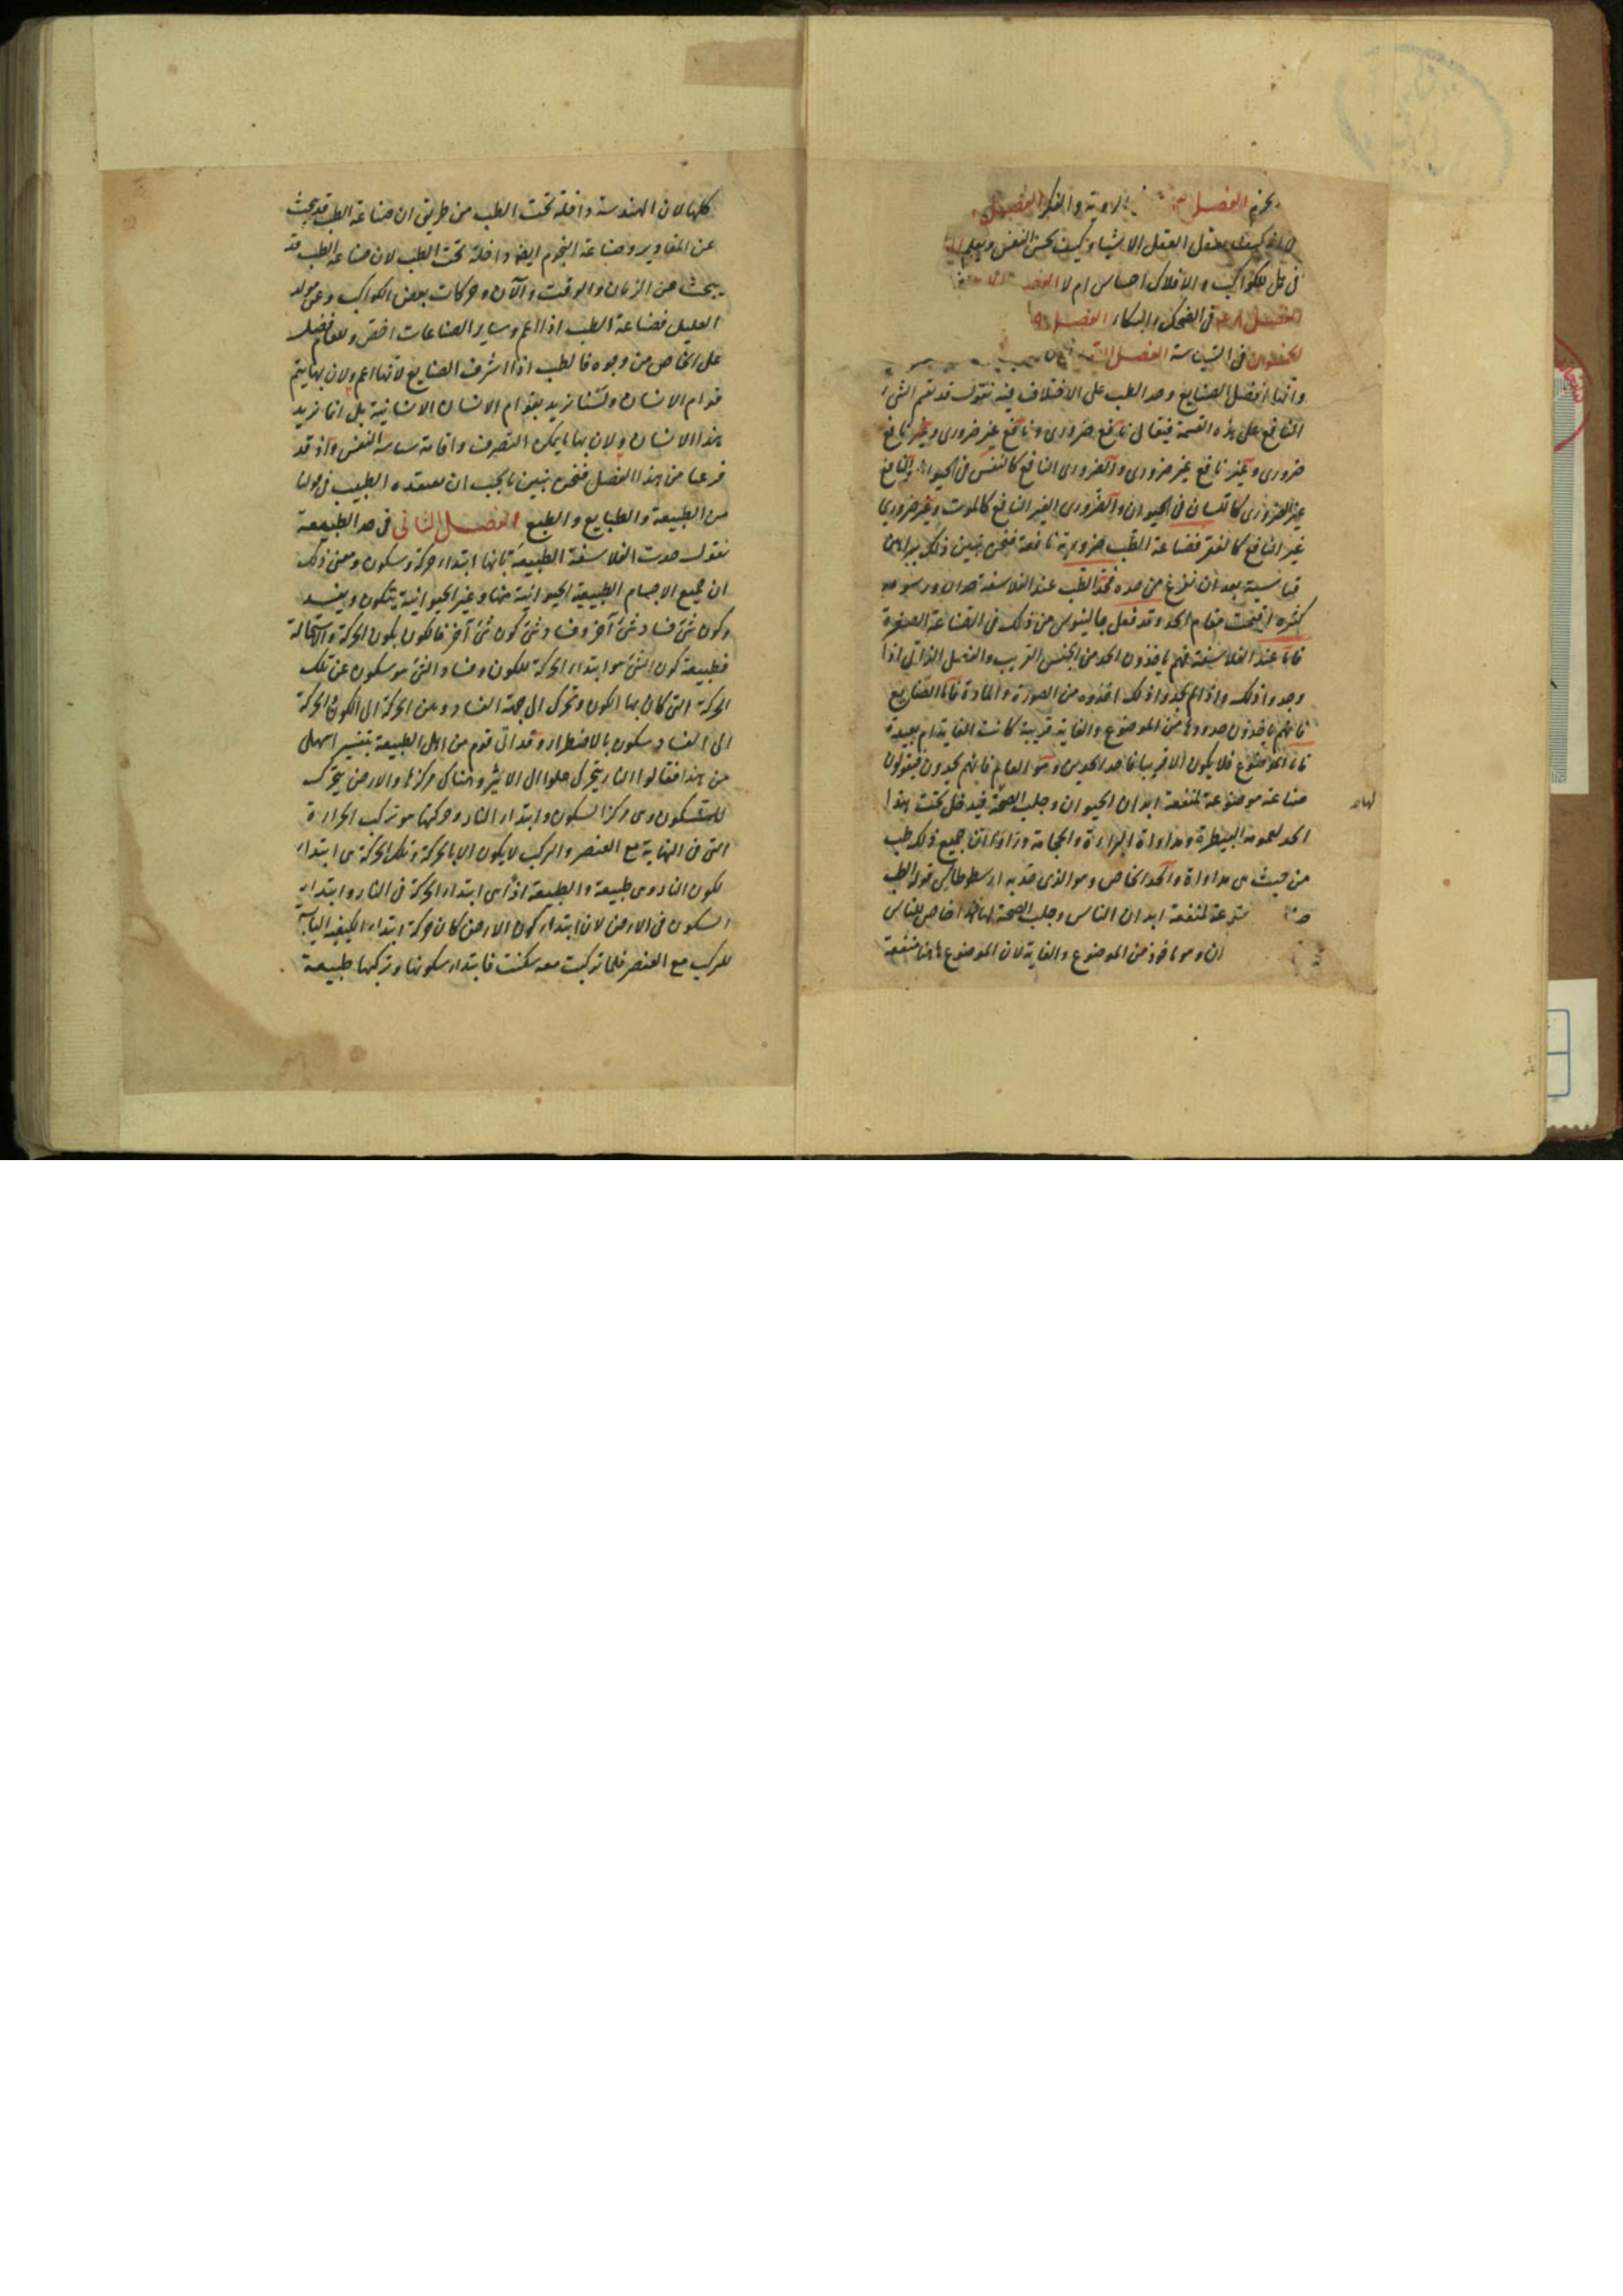 الروية والفكر الفصل
كيف يعقل العقل الاشيا وكيف تحس النفس وبعلم
فى هل للكواكب والافلاك احساس ام لا الفصل
الفصل فى الضحك والبكاء الفصل
فى السياسة الفصل
وانها افضل الصنايع وحد الطب على الاختلاف فيه نقول قد تقسم الشى
النافع على هذه القسمة فيقال نافع ضرورى ونافع غير ضرورى وغير نافع
ضرورى وغير نافع غير ضرورى والضرورى النافع كالنفس فى الحيوان والنافع
غير الضرورى كاللسان فى الحيوان والضرورى الغير النافع كالموت وغير ضرورى
غير النافع كالفقر فصناعة الطب ضرورية نافعة فنحن نبين ذلك ببراهين
قياسية بعد ان نفرغ من حده فحد الطب عند الفلاسفة حدان ورسوم
كثيرة اقيمت مقام الحد وقد فعل جالينوس من ذلك فى الصناعة الصغيرة
فاما عند الفلاسفة فهم ياخذون الحد من الجنس القريب والفصل الذاتى اذا
وجدوا ذلك واذا لم يجدوا ذلك اخذوه من الصورة والمادة فاما الصنايع
فانهم ياخذون حدودها من الموضوع والغاية قريبة كانت الغاية ام بعيدة
فاما الموضوع فلا يكون الا قريبا فاحد الحدين وهو العام فانهم يحدون فيقولون
صناعة موضوعة لمنفعة ابدان الحيوان وجلب الصحة فيدخل تحت هذا
الحد لعمومه البيطرة ومداواة البزاة والحجامة اذ ان جميع ذلك طب
من حيث هى مداواة والحد الخاص وهو الذى حد به ارسطوطاليس قوله الطب
لمنفعة ابدان الناس وجلب الصحة لها فهذا خاص للناس
وهو ماخوذ من الموضوع والغاية لان الموضوع هاهنا منفعة
لها
كلها لان الهندسة داخلة تحت الطب من طريق ان صناعة الطب قد تبحث
عن المقادير وصناعة النجوم ايضا داخلة تحت الطب لان صناعة الطب قد
تبحث عن الزمان والوقت والآن وحركات بعض الكواكب وعن مولد
العليل فصناعة الطب اذا اعم وساير الصناعات اخص وللعام فضل
على الخاص من وجوه فالطب اذا اشرف الصنايع لانها اعم ولان بها يتم
قوام الانسان ولسنا نريد بقوام الانسان الانسانية بل انما نريد
هذا الانسان ولان بها يمكن التصرف واقامة سياسة النفس واذ قد
فرغنا من هذا الفصل فنحن نبين ما يجب ان يعتقده الطبيب فى قولنا
من الطبيعة والطبايع والطبع الفصل الثانى فى حد الطبيعة
نقول حدت الفلاسفة الطبيعة بانها ابتداء حركة وسكون ومعنى ذلك
ان جميع الاجسام الطبيعية الحيوانية منها وغير الحيوانية يتكون ويفسد
وكون شئ فساد شئ آخر وفساد شئ كون شئ آخر فالكون يكون بالحركة والاستحالة
فطبيعة كون الشئ هو ابتداء الحركة للكون وفساد الشئ هو سكون عن تلك
الحركة التى كان بها الكون وتحرك الى جهة الفساد ومن الحركة الى الكون والحركة
الى الفساد سكون بالاضطرار وقد اتى قوم من اهل الطبيعة بتفسير اسهل
من هذا فقالوا النار يتحرك علوا الى الاثير وهناك مركزها والارض يتحرك
للسكون وهى مركز السكون وابتداء النار وحركتها هو تركب الحرارة
التى فى النهاية مع العنصر والتركب لا يكون الا بالحركة وتلك الحركة هى ابتداء
لكون النار وهى طبيعة والطبيعة اذا هى ابتداء الحركة فى النار وابتداء
السكون فى الارض لان ابتداء كون الارض كان حركة ابتداء الكيفية اليابسة
للتركيب مع العنصر فلما تركبت معه سكنت فابتداء سكونها وتركبها طبيعة